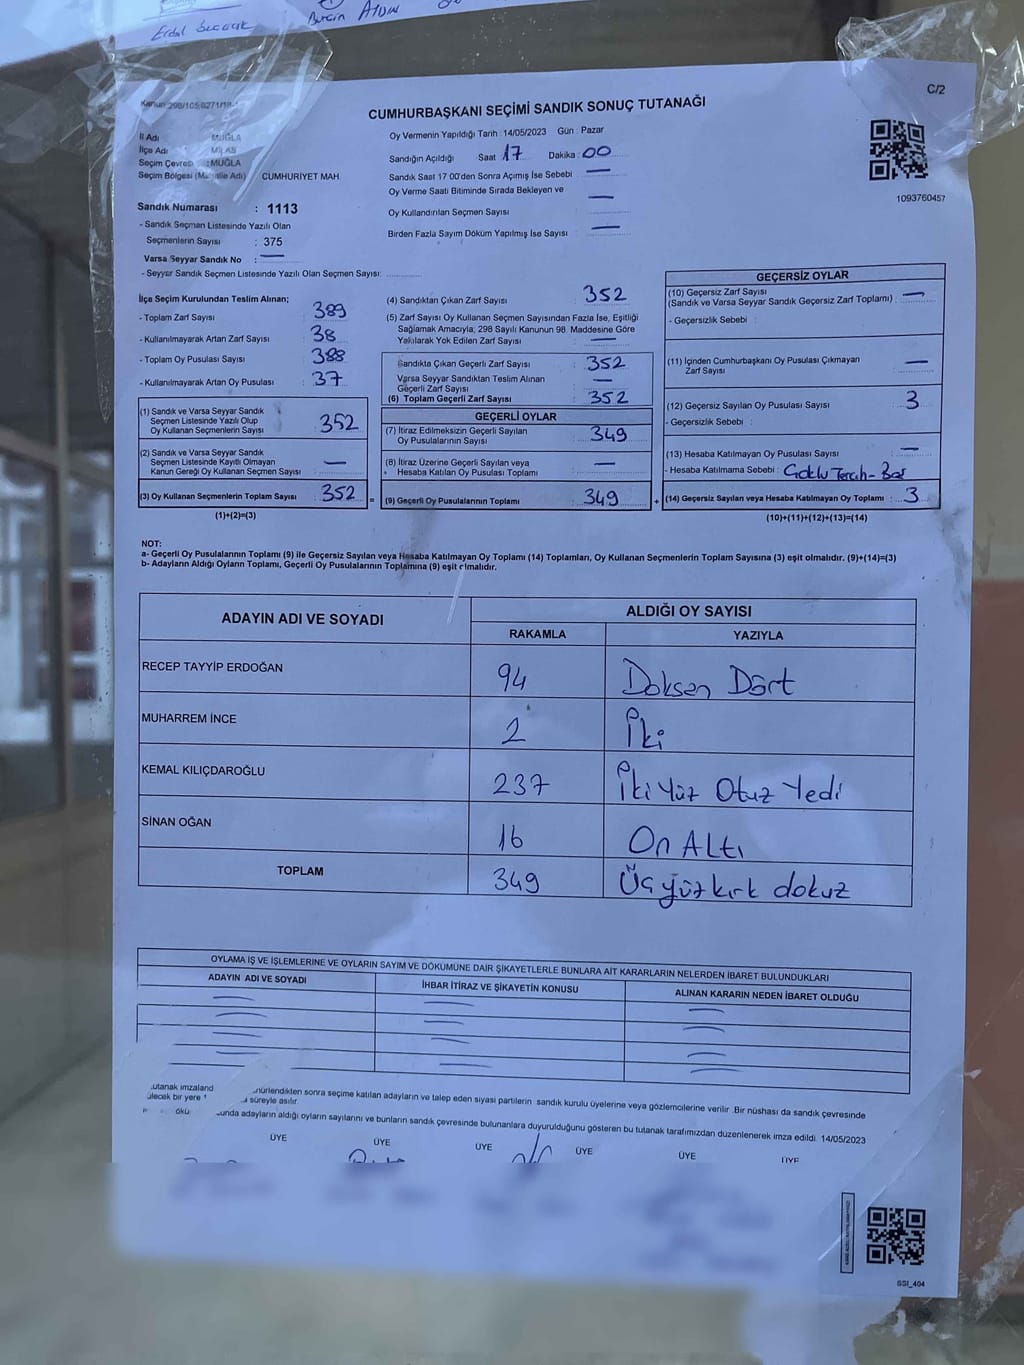 Erdal
Burçin Aydın
Kanun 298/105,6271/18-
C/2
CUMHURBAŞKANI SEÇİMİ SANDIK SONUÇ TUTANAĞI
İl Adı MUĞLA
İlçe Adı MİLAS
Seçim Çevresi : MUĞLA
Seçim Bölgesi (Mahalle Adı) CUMHURİYET MAH
Sandık Numarası : 1113
- Sandık Seçmen Listesinde Yazılı Olan
Seçmenlerin Sayısı : 375
Varsa Seyyar Sandık No : —
- Seyyar Sandık Seçmen Listesinde Yazılı Olan Seçmen Sayısı:
Oy Vermenin Yapıldığı Tarih : 14/05/2023 Gün : Pazar
Sandığın Açıldığı Saat 17 Dakika 00
Sandık Saat 17 00'den Sonra Açılmış İse Sebebi —
Oy Verme Saati Bitiminde Sırada Bekleyen ve —
Oy Kullandırılan Seçmen Sayısı
Birden Fazla Sayım Döküm Yapılmış İse Sayısı —
1093760457
İlçe Seçim Kurulundan Teslim Alınan;
- Toplam Zarf Sayısı : 389
- Kullanılmayarak Artan Zarf Sayısı : 38
- Toplam Oy Pusulası Sayısı : 388
- Kullanılmayarak Artan Oy Pusulası : 37
(1) Sandık ve Varsa Seyyar Sandık
Seçmen Listesinde Yazılı Olup
Oy Kullanan Seçmenlerin Sayısı : 352
(2) Sandık ve Varsa Seyyar Sandık
Seçmen Listesinde Kayıtlı Olmayan
Kanun Gereği Oy Kullanan Seçmen Sayısı : —
(3) Oy Kullanan Seçmenlerin Toplam Sayısı : 352 =
(1)+(2)=(3)
(4) Sandıktan Çıkan Zarf Sayısı : 352
(5) Zarf Sayısı Oy Kullanan Seçmen Sayısından Fazla İse, Eşitliği
Sağlamak Amacıyla, 298 Sayılı Kanunun 98. Maddesine Göre
Yakılarak Yok Edilen Zarf Sayısı : —
Sandıkta Çıkan Geçerli Zarf Sayısı : 352
Varsa Seyyar Sandıktan Teslim Alınan
Geçerli Zarf Sayısı : —
(6) Toplam Geçerli Zarf Sayısı : 352
GEÇERLİ OYLAR
(7) İtiraz Edilmeksizin Geçerli Sayılan
Oy Pusulalarının Sayısı : 349
(8) İtiraz Üzerine Geçerli Sayılan veya
Hesaba Katılan Oy Pusulası Toplamı : —
(9) Geçerli Oy Pusulalarının Toplamı : 349 +
GEÇERSİZ OYLAR
(10) Geçersiz Zarf Sayısı
(Sandık ve Varsa Seyyar Sandık Geçersiz Zarf Toplamı) : —
- Geçersizlik Sebebi :
(11) İçinden Cumhurbaşkanı Oy Pusulası Çıkmayan
Zarf Sayısı : —
(12) Geçersiz Sayılan Oy Pusulası Sayısı : 3
- Geçersizlik Sebebi :
(13) Hesaba Katılmayan Oy Pusulası Sayısı : —
- Hesaba Katılmama Sebebi : Çoklu Tercih-
(14) Geçersiz Sayılan veya Hesaba Katılmayan Oy Toplamı : 3
(10)+(11)+(12)+(13)=(14)
NOT:
a- Geçerli Oy Pusulalarının Toplamı (9) ile Geçersiz Sayılan veya Hesaba Katılmayan Oy Toplamı (14) Toplamları, Oy Kullanan Seçmenlerin Toplam Sayısına (3) eşit olmalıdır. (9)+(14)=(3)
b- Adayların Aldığı Oyların Toplamı, Geçerli Oy Pusulalarının Toplamına (9) eşit olmalıdır.
ADAYIN ADI VE SOYADI ALDIĞI OY SAYISI
RAKAMLA YAZIYLA
RECEP TAYYİP ERDOĞAN 94 Doksan Dört
MUHARREM İNCE 2 İki
KEMAL KILIÇDAROĞLU 237 İki Yüz Otuz Yedi
SİNAN OĞAN 16 On Altı
TOPLAM 349 Üç yüz kırk dokuz
OYLAMA İŞ VE İŞLEMLERİNE VE OYLARIN SAYIM VE DÖKÜMÜNE DAİR ŞİKAYETLERLE BUNLARA AİT KARARLARIN NELERDEN İBARET BULUNDUKLARI
ADAYIN ADI VE SOYADI İHBAR İTİRAZ VE ŞİKAYETİN KONUSU ALINAN KARARIN NEDEN İBARET OLDUĞU
tutanak imzaland nürlendikten sonra seçime katılan adayların ve talep eden siyasi partilerin sandık kurulu üyelerine veya gözlemcilerine verilir .Bir nüshası da sandık çevresinde
ilecek bir yere süreyle asılır.
unda adayların aldığı oyların sayılarını ve bunların sandık çevresinde bulunanlara duyurulduğunu gösteren bu tutanak tarafımızdan düzenlenerek imza edildi. 14/05/2023
ÜYE ÜYE ÜYE ÜYE ÜYE ÜYE
SSI_404